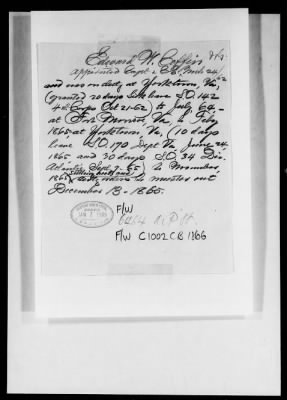 Edward W. Coffin
appointed Capt & C.S. Feb. 24/62
and was on duty at Yorktown, Va.
(granted 20 days sick leave S.O. 142
4th Corps Oct 21-62) to July 63,-
at Fort Monroe Va, to Feby
1865, at Yorktown, Va, (10 days
leave S.O. 170 Dept Va June 24
1865 and 30 days S.O. 34 Div.
Atlantic Sept 9-65) to November
1865, settling accts and
under orders to muster out
December 13-1865.
F/W
F/W C1002 CB 1866